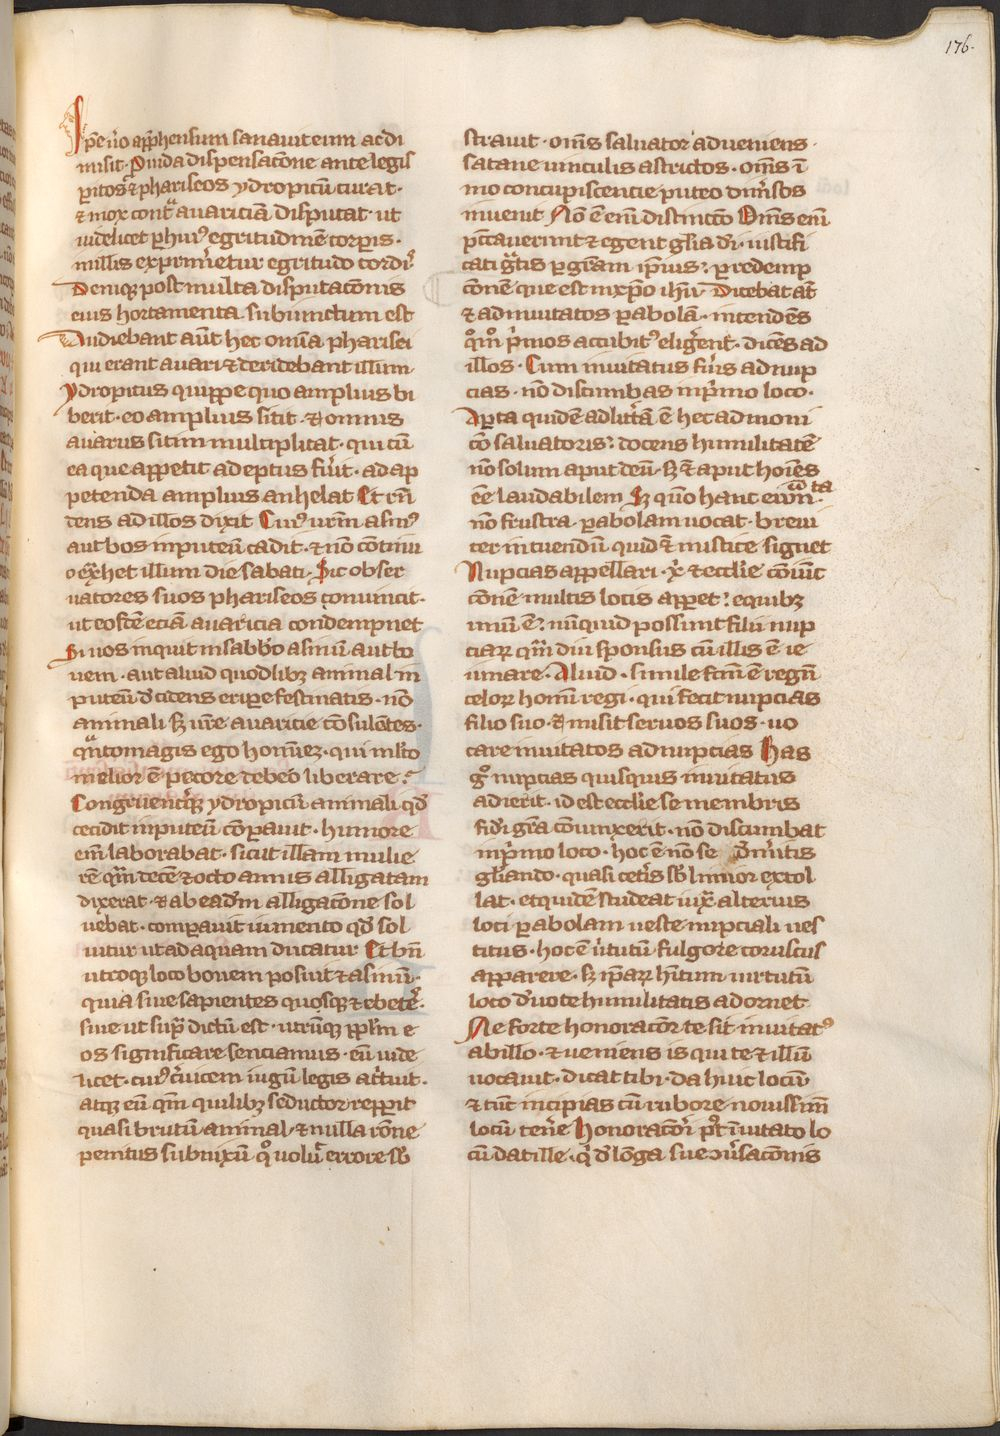 176.
Ip̄e u̾o app̄hensum sanauit eum ac di
misit. Puida dispensac̄one ante legis
p̄itos & phariseos ydropicū curat.
& mox cont̾ auariciā disputat. ut
uidelicet p̄ hui᷒ egritudinē corporis.
in illis exprim̄etur egritudo cordis
Deniq; post multa disputac̄onis
eius hortamenta subiunctum est
Audiebant aūt hec om̄ia pharisei
qui erant auari & deridebant illum
ydropicus quippe quo amplius bi
berit. eo amplius sitit. & omnis
auarus sitim multiplicat. qui cū
ea que appetit adeptus fu̾it. ad ap
petenda amplius anhelat Et rn̄
dens ad illos dixit Cui᷒ ur̄m asin᷒
aut bos in puteū cadit. & nō cōtinu
o ex̾het illum die sabati. Sic obser
uatores suos phariseos conuincit.
ut eosdē eciā auaricia condempnet
Si uos inquit in sabb̾o asinū aut bo
uem. aut aliud quodlibz animal in
puteū d̾cidens eripe festinatis. nō
animali sz ur̄e auaricie cōsulētes.
q̄nto magis ego hom̄iez. qui m̾lto
melior ē pecore debeo liberare.
Congruent̾qz ydropicū animali qd̾
cecidit in puteū cōparauit. humore
eni̅ laborabat. sicut illam mulie
rē qm̄ decē & octo annis alligatam
dixerat. & ab ead̄m alligac̄one sol
uebat. comparauit iumento qd̾ sol
uitur ut ad aquam ducatur Et bn̄
utroqz loco bouem posuit & asinū.
quia siue sapientes quosqz & ebetes.
siue ut sup̾ dictū est. utrūqz pp̄lm e
os significare senciamus. eū uide
licet. cui᷒ c̾uicem iugū legis at̾uit.
atqz eū qm̄ quilibz seductor rep̄pit
quasi brutum animal. & nulla rōne
penitus subnixū q̊ uolu̾ errore sb̾
strauit. om̄s saluator adueniens.
satane uinculis astrictos. om̄s ī
mo concupiscentie puteo dim̄sos
inuenit Nō ē eni̅ distinccō Om̄s eni̅
pcc̄auerunt & egent gl̄ia di̾. iustifi
cati gr̾tis p̄ gr̄am ip̄ius. p̄ redemp
cōnē que est in xp̄o ih̄u Dicebat aūt
& ad inuitatos p̄abolā. intendēs
q̊m̊ p̾mos accubit᷒ elig̾ent. dicēs ad
illos. Cum inuitatus fu̾is ad nup
cias. nō discumbas in p̾mo loco.
Ap̄ta quidē ad litt̾ā ē hec admoni
cō saluatoris. docens humilitatē
nō solum aput deū. sz & aput hoīes
eē laudabilem Sz qm̄ hanc ewn̄.ta
nō frustra. p̄abolam uocat. breui
ter intuendū quid & mistice signet
Nupcias appellari. x̄ & ecclie cōiūc
cōnē multis locis apparet. e quibz
unū ē. nūquid possunt filii nup
ciarz qm̄ diu sponsus cū illis ē ie
iunare. Aliud. simile fcm̄ ē regnū
celorz homī regi. qui fecit nupcias
filio suo. & misit seruos suos. uo
care inuitatos ad nupcias Has
g̊ nupcias quisquis inuitatus
adierit. id est ecclie se membris
fidi̾ gr̄a cōiunxerit. nō discumbat
in p̾mo loco. hoc ē nō se d̾ m̄itis
gl̄iando. quasi cet̾is sb̾limior extol
lat. et quidē studeat iux̾ alterius
loci p̄abolam ueste nupciali ues
titus. hoc ē u̾tutū fulgore coruscus
apparere. sz ip̄arz h̾itum uirtutū
loco d̾uote humilitatis adornet
Ne forte honoracōr te sit inuitat᷒
ab illo. & ueniens is qui te & illū
uocauit. dicat tibi. da huic locū
& tūc incipias cū rubore nouissim̄
locū ten̾e Honoracōri p̾t ī̄uitato lo
cū dat ille. q̾ d̾ lōga sue ɔu̾sacōnis